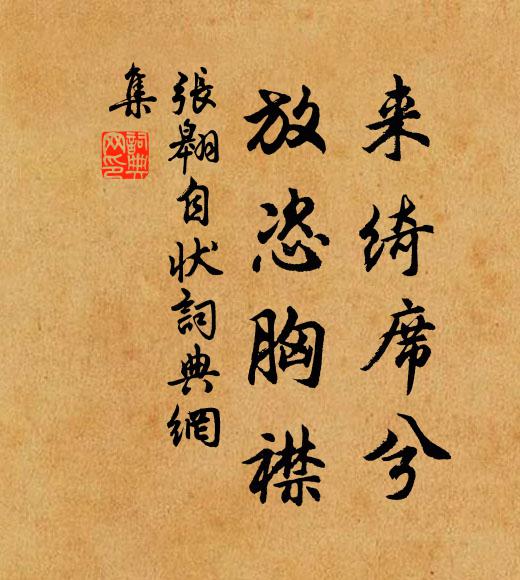 来绮席兮
放恣胸襟
張翱自状詞典網
集
詞典
网印